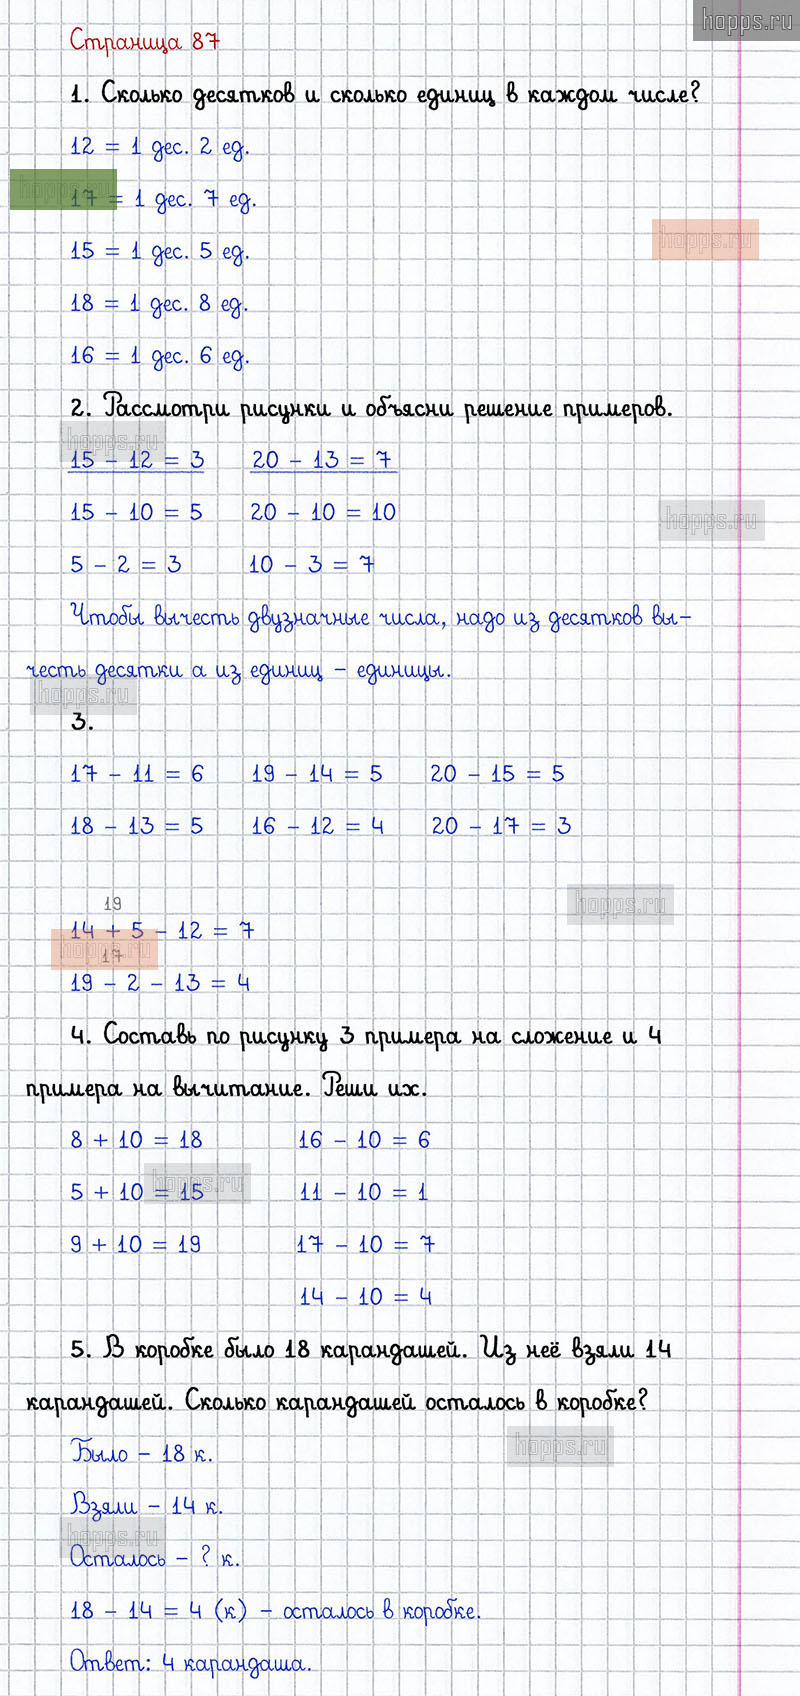 hopps.ru
Страница 87
1. Сколько десятков и сколько единиц в каждом числе?
12 = 1 дес. 2 ед.
hopps.ru
17 = 1 дес. 7 ед.
hopps.ru
15 = 1 дес. 5 ед.
18 = 1 дес. 8 ед.
16 = 1 дес. 6 ед.
2. Рассмотри рисунки и объясни решение примеров.
hopps.ru
15 - 12 = 3 20 - 13 = 7
15 - 10 = 5 20 - 10 = 10
hopps.ru
5 - 2 = 3 10 - 3 = 7
Чтобы вычесть двузначные числа, надо из десятков вы-
честь десятки а из единиц - единицы.
hopps.ru
3.
17 - 11 = 6 19 - 14 = 5 20 - 15 = 5
18 - 13 = 5 16 - 12 = 4 20 - 17 = 3
19
hopps.ru
14 + 5 - 12 = 7
hopps.ru
17
19 - 2 - 13 = 4
4. Составь по рисунку 3 примера на сложение и 4
примера на вычитание. Реши их.
8 + 10 = 18 16 - 10 = 6
hopps.ru
5 + 10 = 15 11 - 10 = 1
9 + 10 = 19 17 - 10 = 7
14 - 10 = 4
5. В коробке было 18 карандашей. Из неё взяли 14
карандашей. Сколько карандашей осталось в коробке?
hopps.ru
Было - 18 к.
Взяли - 14 к.
hopps.ru
Осталось - ? к.
18 - 14 = 4 (к) - осталось в коробке.
Ответ: 4 карандаша.